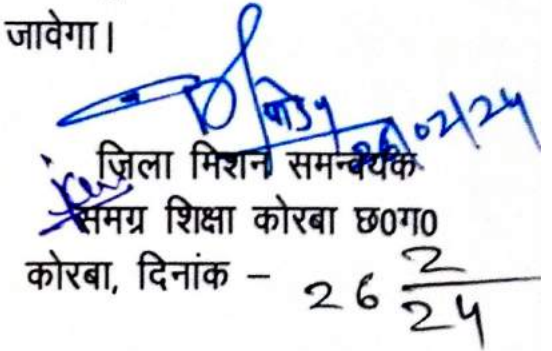 जावेगा।
26/02/24
जिला मिशन समन्वयक
समग्र शिक्षा कोरबा छ0ग0
कोरबा, दिनांक – 26 2/24